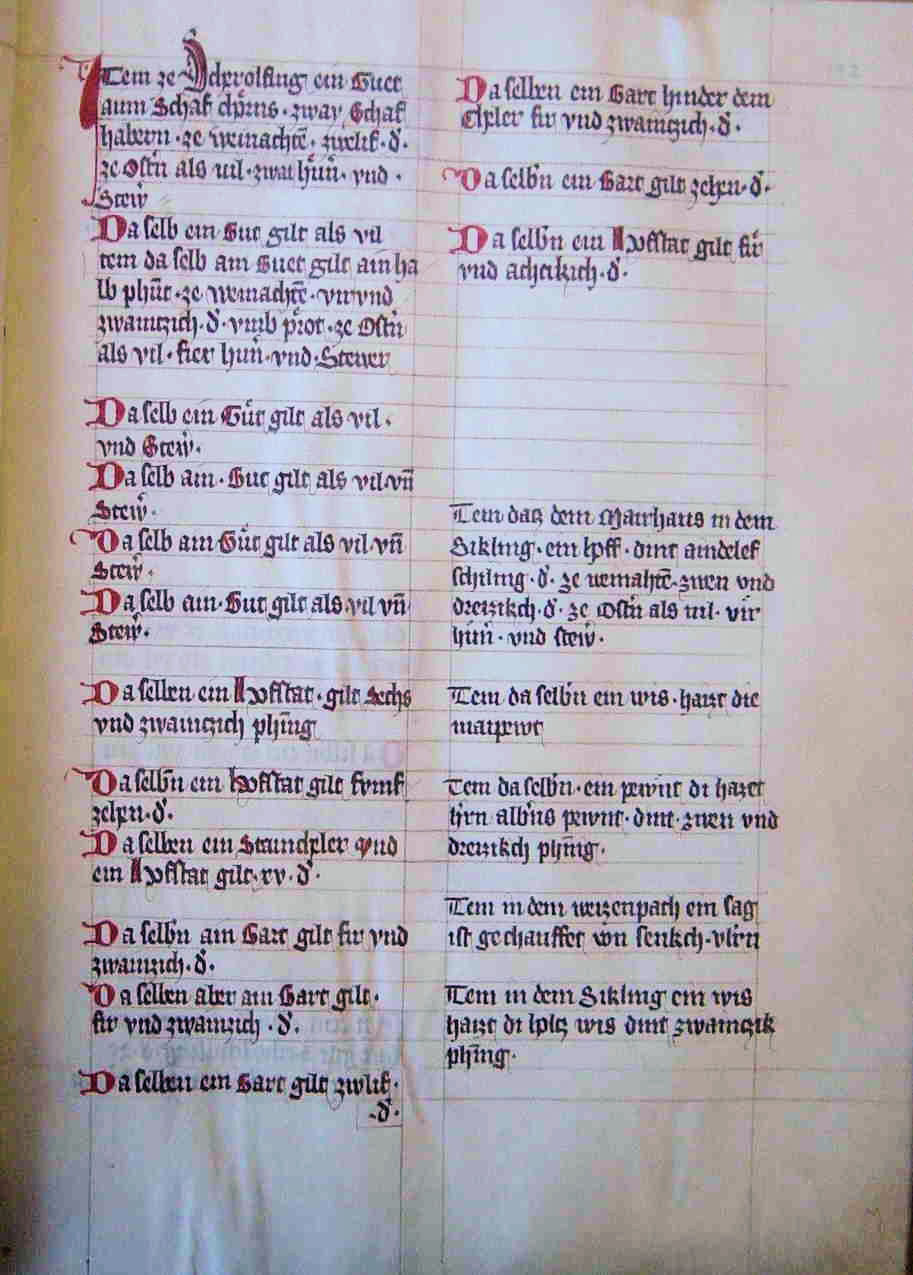 Item ze Scherolfing ein Guet
ain Schaf chorns · zway Schaf
habern · ze weinachtē · zwelif · d ·
ze Ostn̄ als vil · zwai hun̄ · vnd ·
Stew̄
Da selb ein Gut gilt als vil
item da selb ain Guet gilt ain ha
lb phūt · ze weinachtē · vir vnd
zwaintzich · d · vmb prot · ze Ostn̄
als vil · fier hun̄ · vnd · Steuer
Da selb ein Gut gilt als vil ·
vnd Stew̄ ·
Da selb ain · Gut gilt als vil · vn̄
Stew̄ ·
Da selb ain Gut gilt als vil · vn̄
Stew̄ ·
Da selb ain · Gut gilt als · vil vn̄
Stew̄ ·
Da selben ein Hofstat · gilt Sechs
vnd zwaintzich phīng
Da selbn̄ ein Hofstat gilt fvmf
zehen · d ·
Da selben ein vnd
ein Hofstat gilt · xv · d ·
Da selbn̄ ain Gart gilt fir vnd
zwainzich · d ·
Da selben aber ain Gart gilt ·
fir vnd zwainzich · d ·
Da selben ein Gart gilt zwlif ·
· d ·
Da selben ein Gart hinder dem
fir vnd zwaintzich · d ·
Da selbn̄ ein Gart gilt zehen · d ·
Da selbn̄ ein Hofstat gilt fir
vnd achtzkich · d ·
Item datz dem Mairhaus in dem
Sikling · ein hoff · dint aindelef
schiling · d · ze weinahtē · zwen vnd
dreizikch · d · ze Ostn̄ als uil · vir
hun̄ · vnd stew̄ ·
Item da selbn̄ ein wis · haizt die
maipewt
Item da selbn̄ · ein pewnt di haizet
hern albn̄s pewnt · dint · zwen vnd
dreizikch phn̄ig ·
Item in dem weizenpach ein sag
ist gechauffet von senkch · vlrn
Item in dem Sikling ein wis
haizt di holtz wis dint zwaintzik
phīng ·